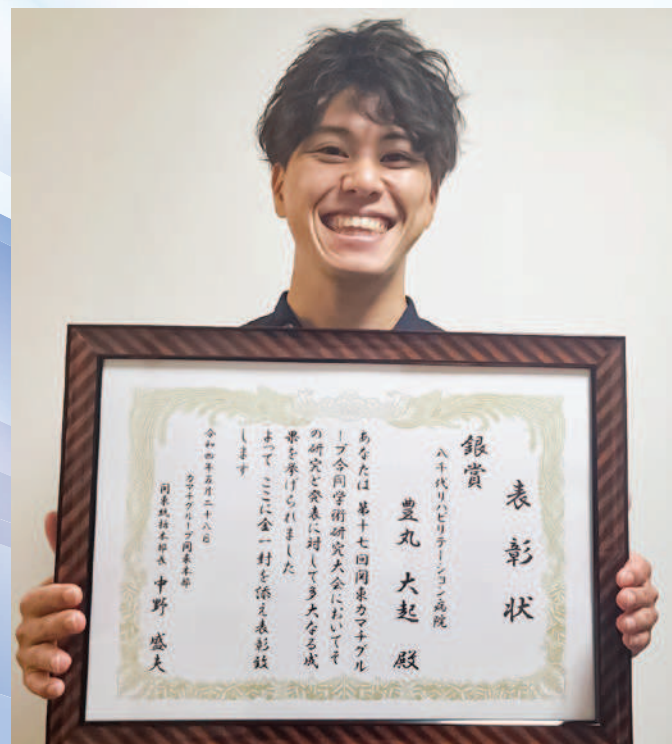 表彰状
銀賞
八千代リハビリテーション病院
豊丸 大起 殿
あなたは 第十七回関東カマチグル
ープ合同学術研究大会においてそ
の研究と発表に対して多大なる成
果を挙げられました
よって ここに金一封を添え表彰致
します
令和四年五月二十八日
カマチグループ関東本部
関東統括本部長 中野 盛夫